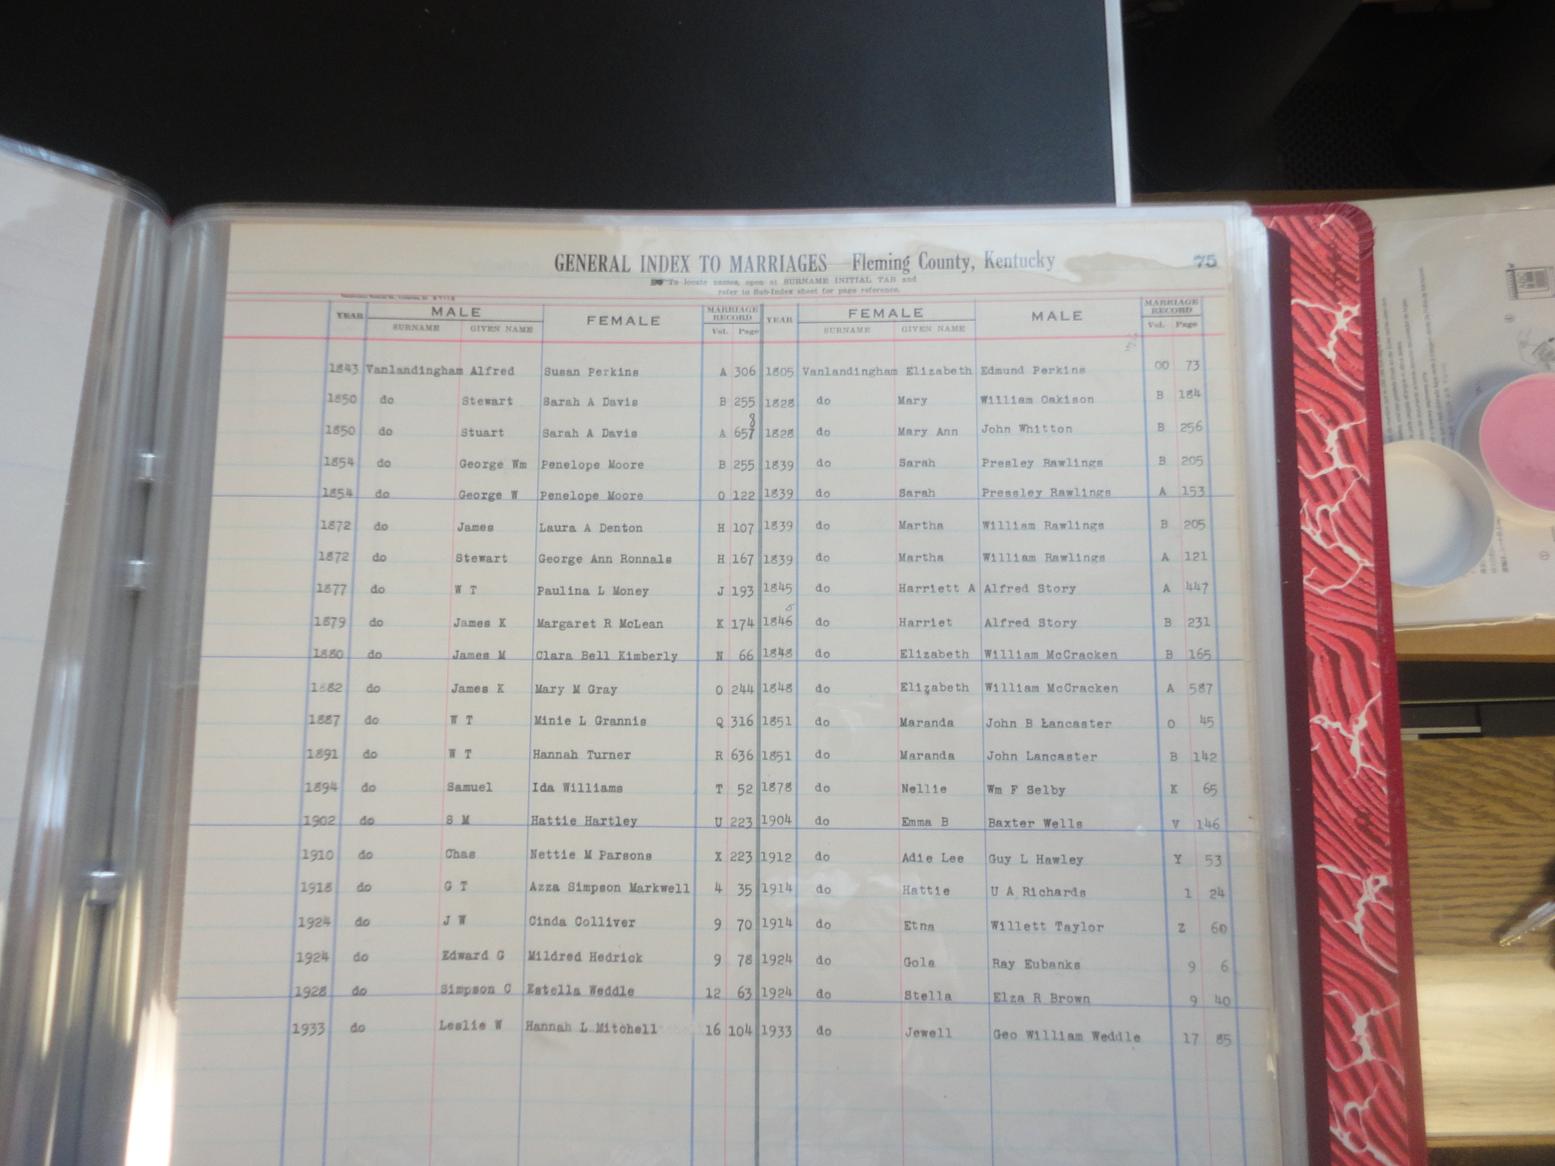 GENERAL INDEX TO MARRIAGES Fleming County, Kentucky 75
To locate names, open at SURNAME INITIAL TAB and
refer to Sub-Index sheet for page reference.
YEAR MALE FEMALE MARRIAGE RECORD YEAR FEMALE MALE MARRIAGE RECORD
SURNAME GIVEN NAME Vol. Page SURNAME GIVEN NAME Vol. Page
1843 Vanlandingham Alfred Susan Perkins A 306 1805 Vanlandingham Elizabeth Edmund Perkins OO 73
1850 do Stewart Sarah A Davis B 255 1828 do Mary William Oakison B 184
8
1850 do Stuart Sarah A Davis A 657 1828 do Mary Ann John Whitton B 256
1854 do George Wm Penelope Moore B 255 1839 do Sarah Presley Rawlings B 205
1854 do George W Penelope Moore O 122 1839 do Sarah Pressley Rawlings A 153
1872 do James Laura A Denton H 107 1839 do Martha William Rawlings B 205
1872 do Stewart George Ann Ronnals H 167 1839 do Martha William Rawlings A 121
1877 do W T Paulina L Money J 193 1845 do Harriett A Alfred Story A 447
5
1879 do James K Margaret R McLean K 174 1846 do Harriet Alfred Story B 231
1880 do James M Clara Bell Kimberly N 66 1848 do Elizabeth William McCracken B 165
1882 do James K Mary M Gray O 244 1848 do Elizabeth William McCracken A 587
1887 do W T Minie L Grannis Q 316 1851 do Maranda John B Lancaster O 45
1891 do W T Hannah Turner R 636 1851 do Maranda John Lancaster B 142
1894 do Samuel Ida Williams T 52 1878 do Nellie Wm F Selby K 65
1902 do S M Hattie Hartley U 223 1904 do Emma B Baxter Wells V 146
1910 do Chas Nettie M Parsons X 223 1912 do Adie Lee Guy L Hawley Y 53
1918 do G T Azza Simpson Markwell 4 35 1914 do Hattie U A Richards 1 24
1924 do J W Cinda Colliver 9 70 1914 do Etna Willett Taylor Z 60
1924 do Edward G Mildred Hedrick 9 78 1924 do Gola Ray Eubanks 9 6
1928 do Simpson C Estella Weddle 12 63 1924 do Stella Elza R Brown 9 40
1933 do Leslie W Hannah L Mitchell 16 104 1933 do Jewell Geo William Weddle 17 85